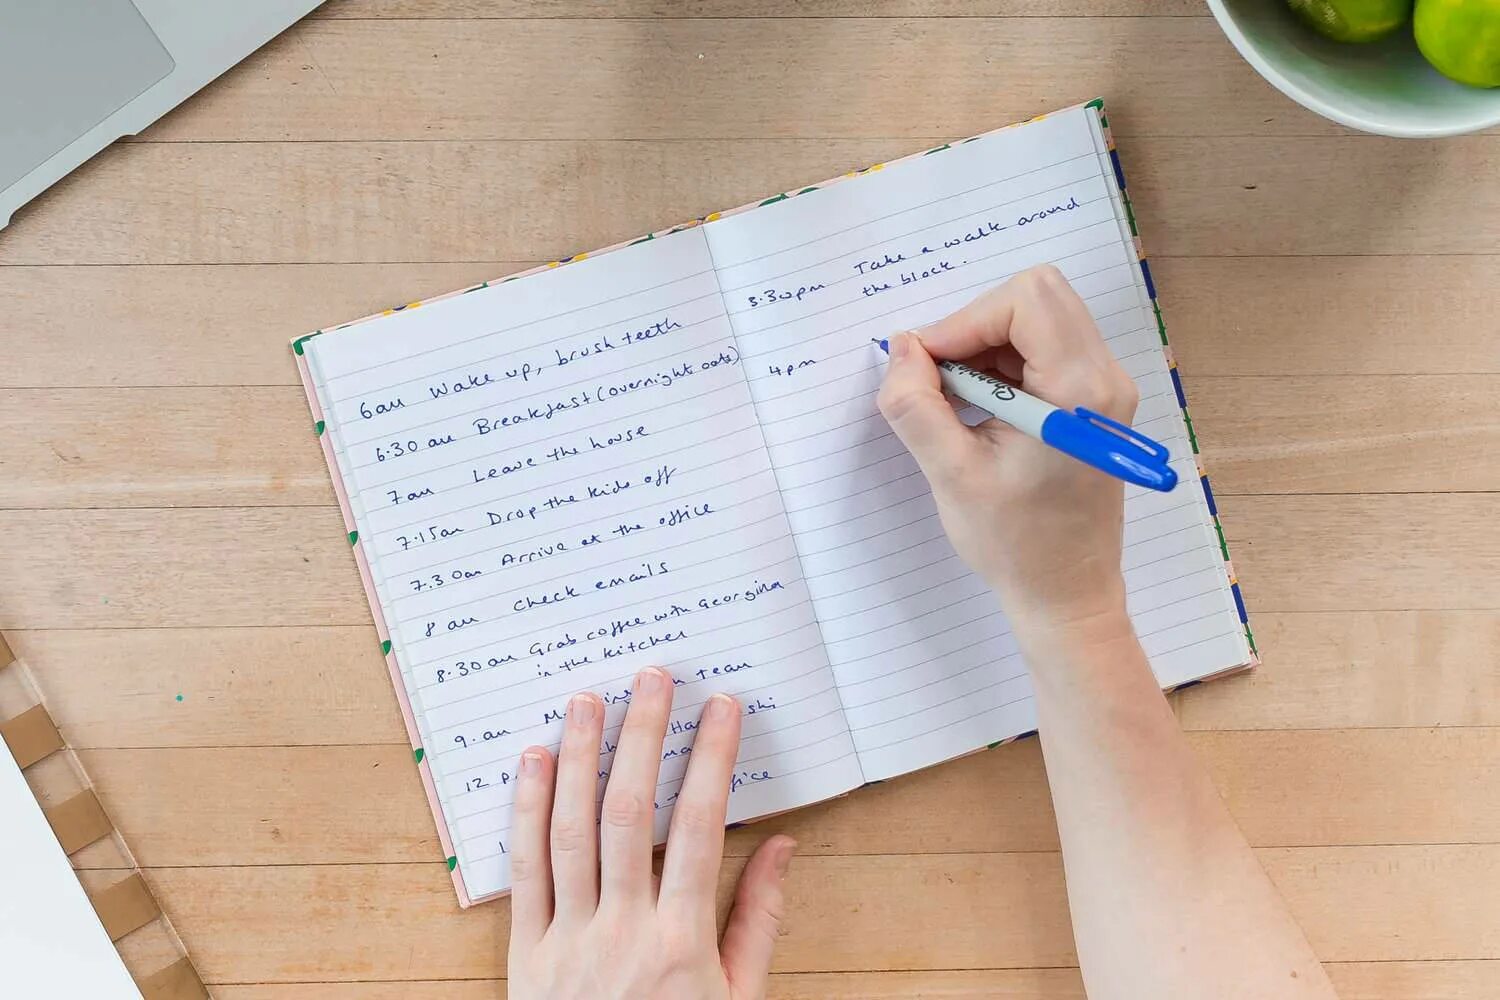 6am Wake up, brush teeth
6.30 am Breakfast (overnight oats)
7am Leave the house
7.15am Drop the kids off
7.30am Arrive at the office
8 am check emails
8.30 am Grab coffee with Georgina
in the kitchen
9.am team
12
Take a walk around
3.30pm the block.
4pm
Sharpie